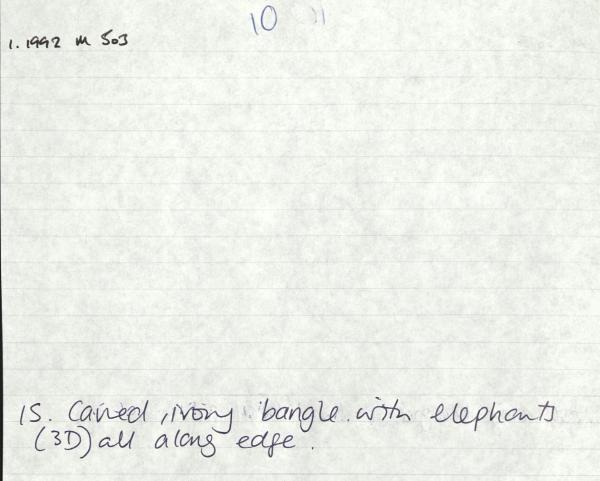 10
1. 1992 m 503
15. Carved, ivory bangle with elephants
(3D) all along edge.